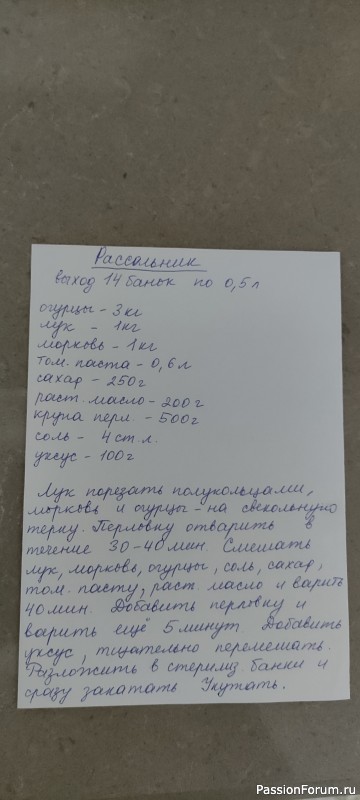 Рассольник
выход 14 банок по 0,5 л
огурцы - 3 кг
лук - 1 кг
морковь - 1 кг
том. паста - 0,6 л
сахар - 250 г
раст. масло - 200 г
крупа перл. - 500 г
соль - 4 ст. л.
уксус - 100 г
Лук порезать полукольцами,
морковь и огурцы - на свекольную
тёрку. Перловку отварить в
течение 30-40 мин. Смешать
лук, морковь, огурцы, соль, сахар,
том. пасту, раст. масло и варить
40 мин. Добавить перловку и
варить ещё 5 минут Добавить
уксус, тщательно перемешать.
Разложить в стерилиз банки и
сразу закатать Укутать.
PassionForum.ru